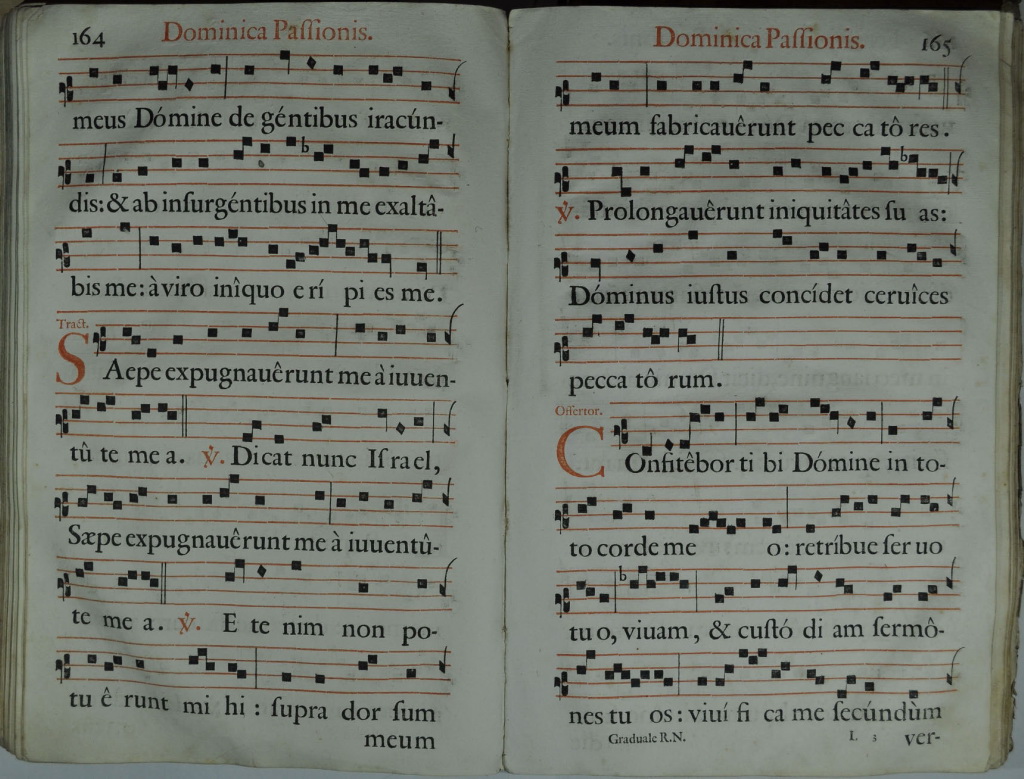 164 Dominica Paſſionis.
meus Dómine de géntibus iracún-
dis: & ab inſurgéntibus in me exaltâ-
bis me: à viro inîquo e rí pi es me.
Tract.
SAepe expugnauêrunt me à iuuen-
tû te me a. ℣. Dicat nunc Iſ ra el,
Sæpe expugnauêrunt me à iuuentû-
te me a. ℣. E te nim non po-
tu ê runt mi hi : ſupra dor ſum
meum
Dominica Paſſionis. 165
meum fabricauêrunt pec ca tô res.
℣. Prolongauêrunt iniquitâtes ſu as:
Dóminus iuſtus concídet ceruîces
pecca tô rum.
Offertor.
COnfitêbor ti bi Dómine in to-
to corde me o: retríbue ſer uo
tu o, viuam, & cuſtó di am ſermô-
nes tu os: viuí fi ca me ſecúndùm
Graduale R.N. L 3 ver-